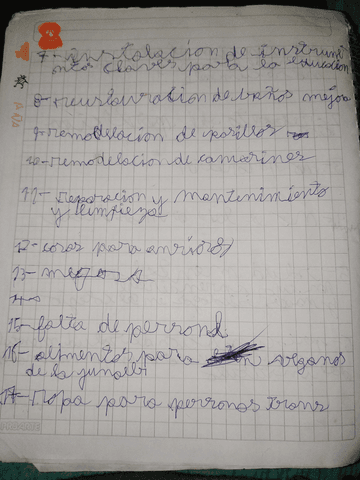 8
7-instalacion de instrum
ntos claves para la educacion
8-restauracion de baños mejor
9-remodelacion de pasillos
10-remodelacion de camarines
11-reparacion y mantenimiento
y limpieza
12-cosas para
13-mesas
14-
15-falta de personal
16-alimentos para
de la
17-Ropa para personas trans